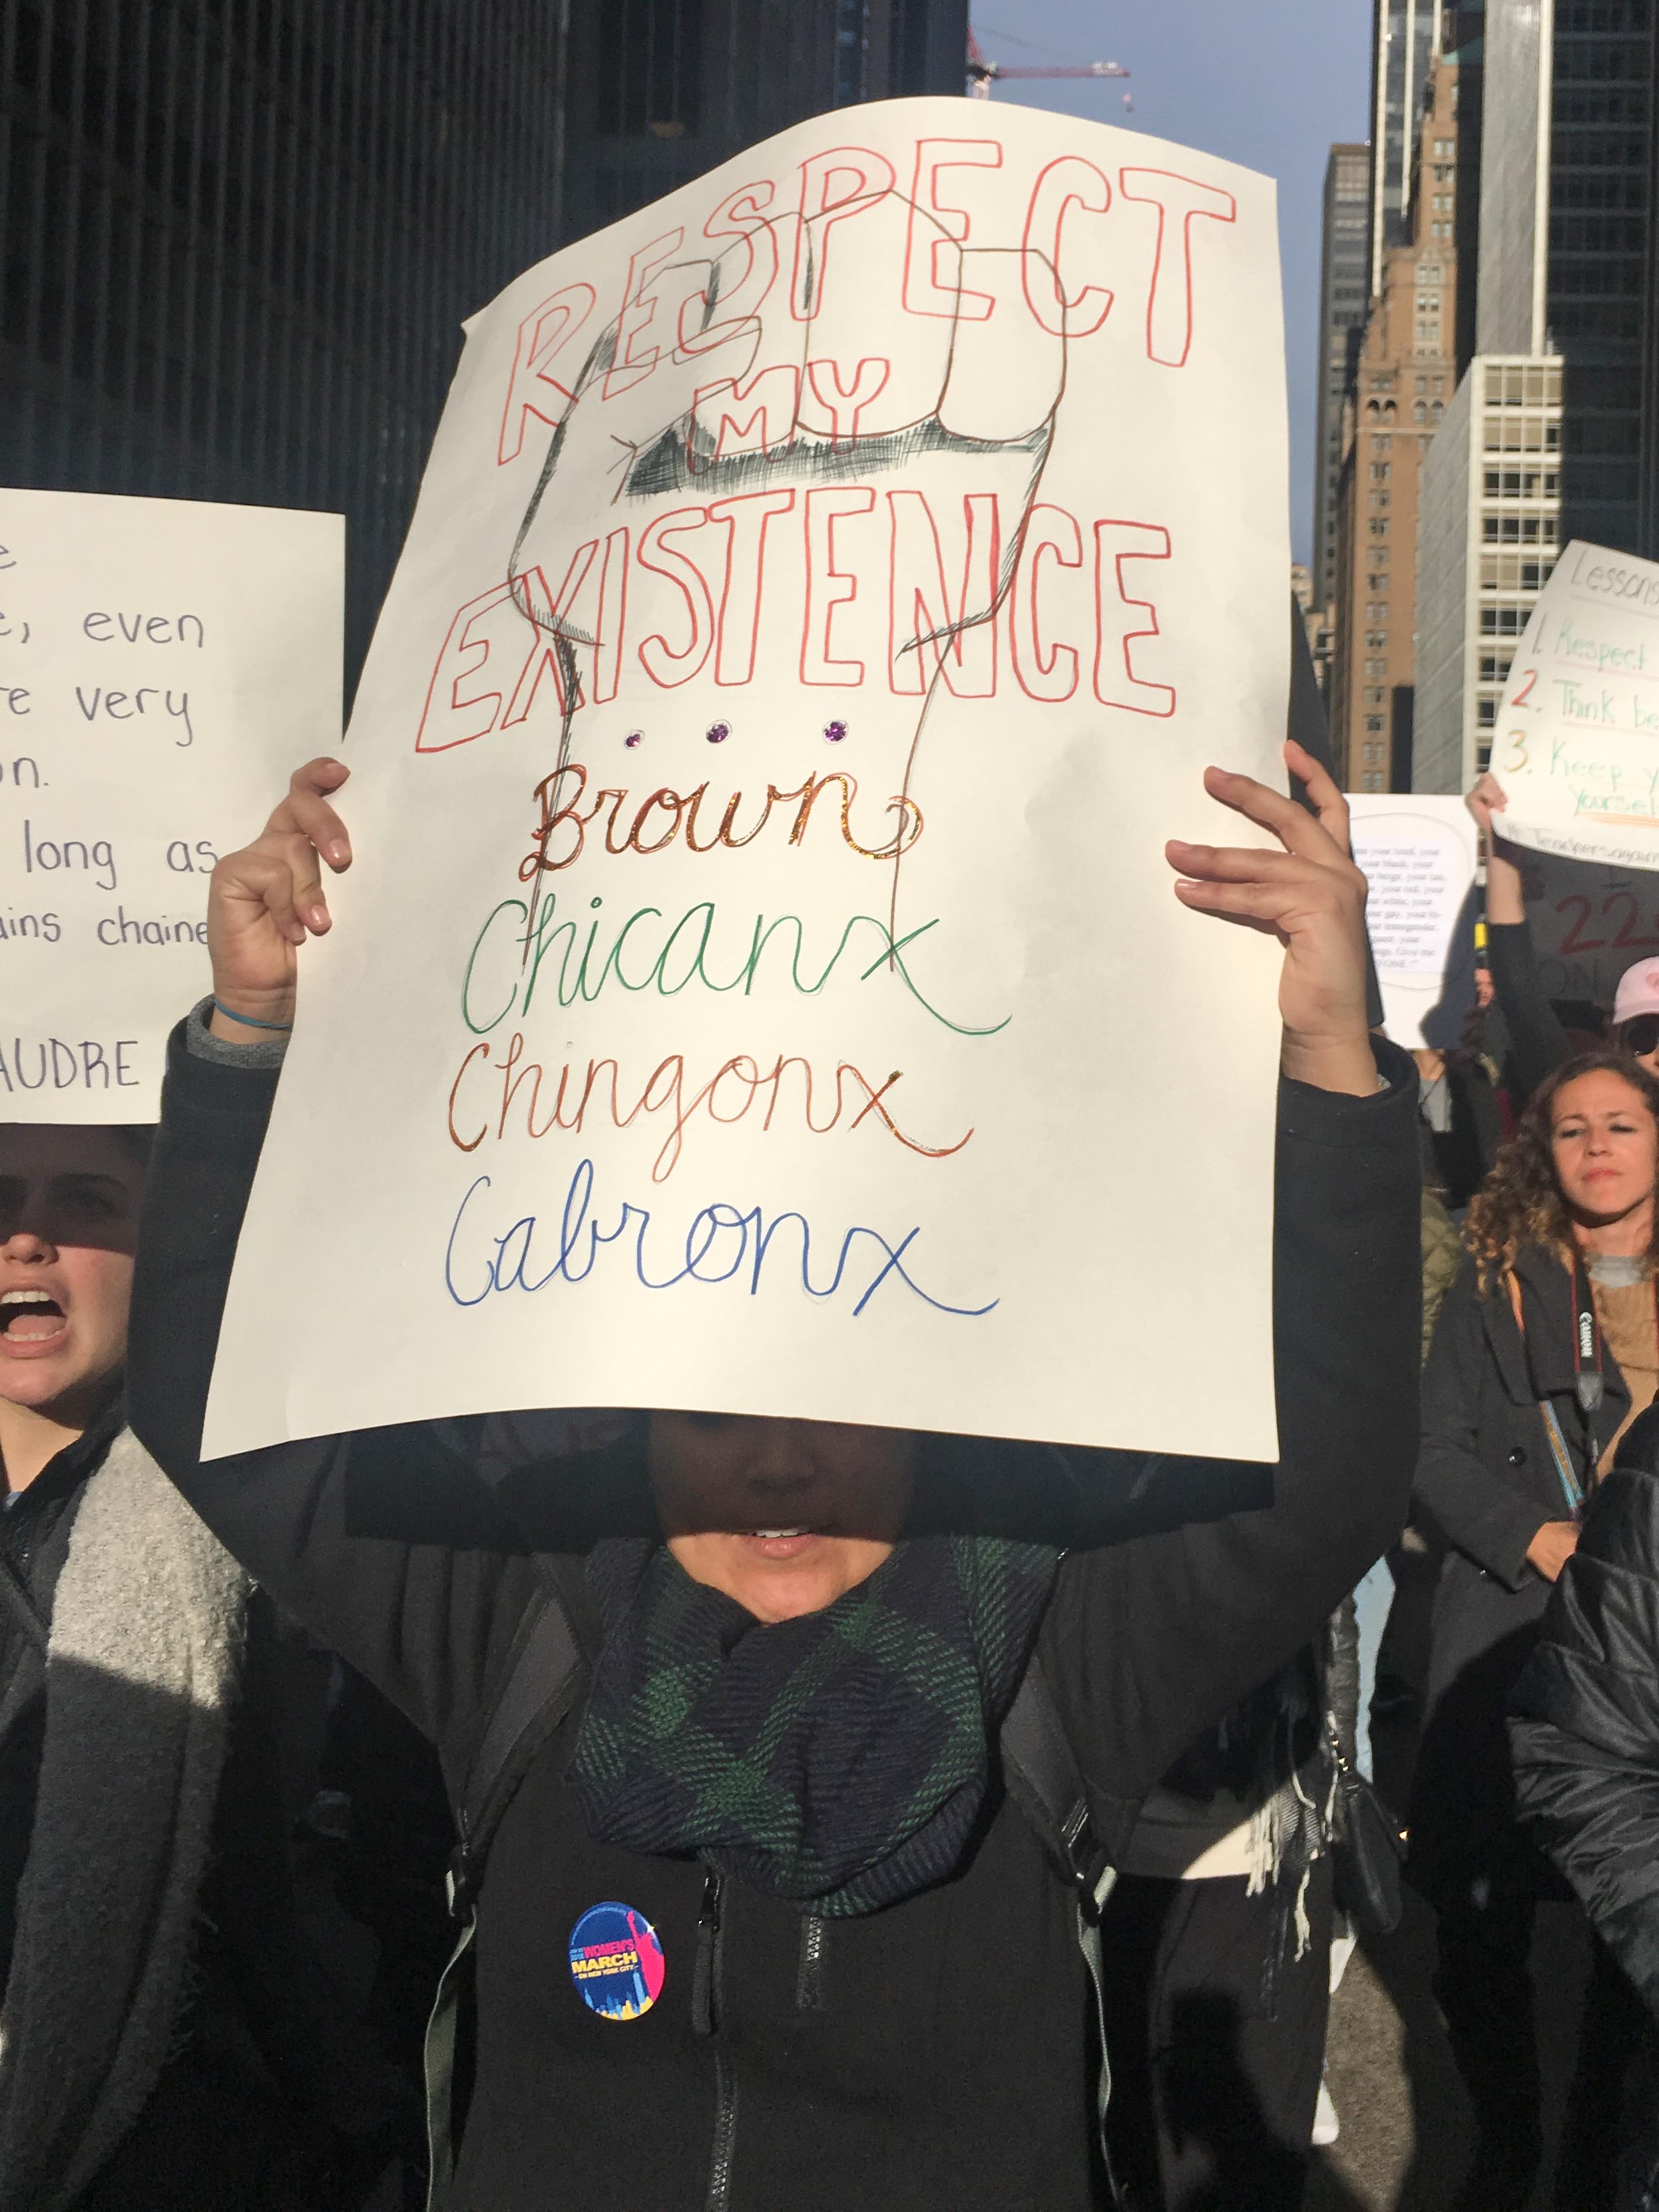 RESPECT
MY
EXISTENCE
Brown
Chicanx
Chingonx
Cabronx
even
very
long as
chaine
AUDRE
Lessons
1. Respect
2. Think be
3. Keep y
yourself
22
Canon
WOMEN'S
MARCH
ON NEW YORK CITY